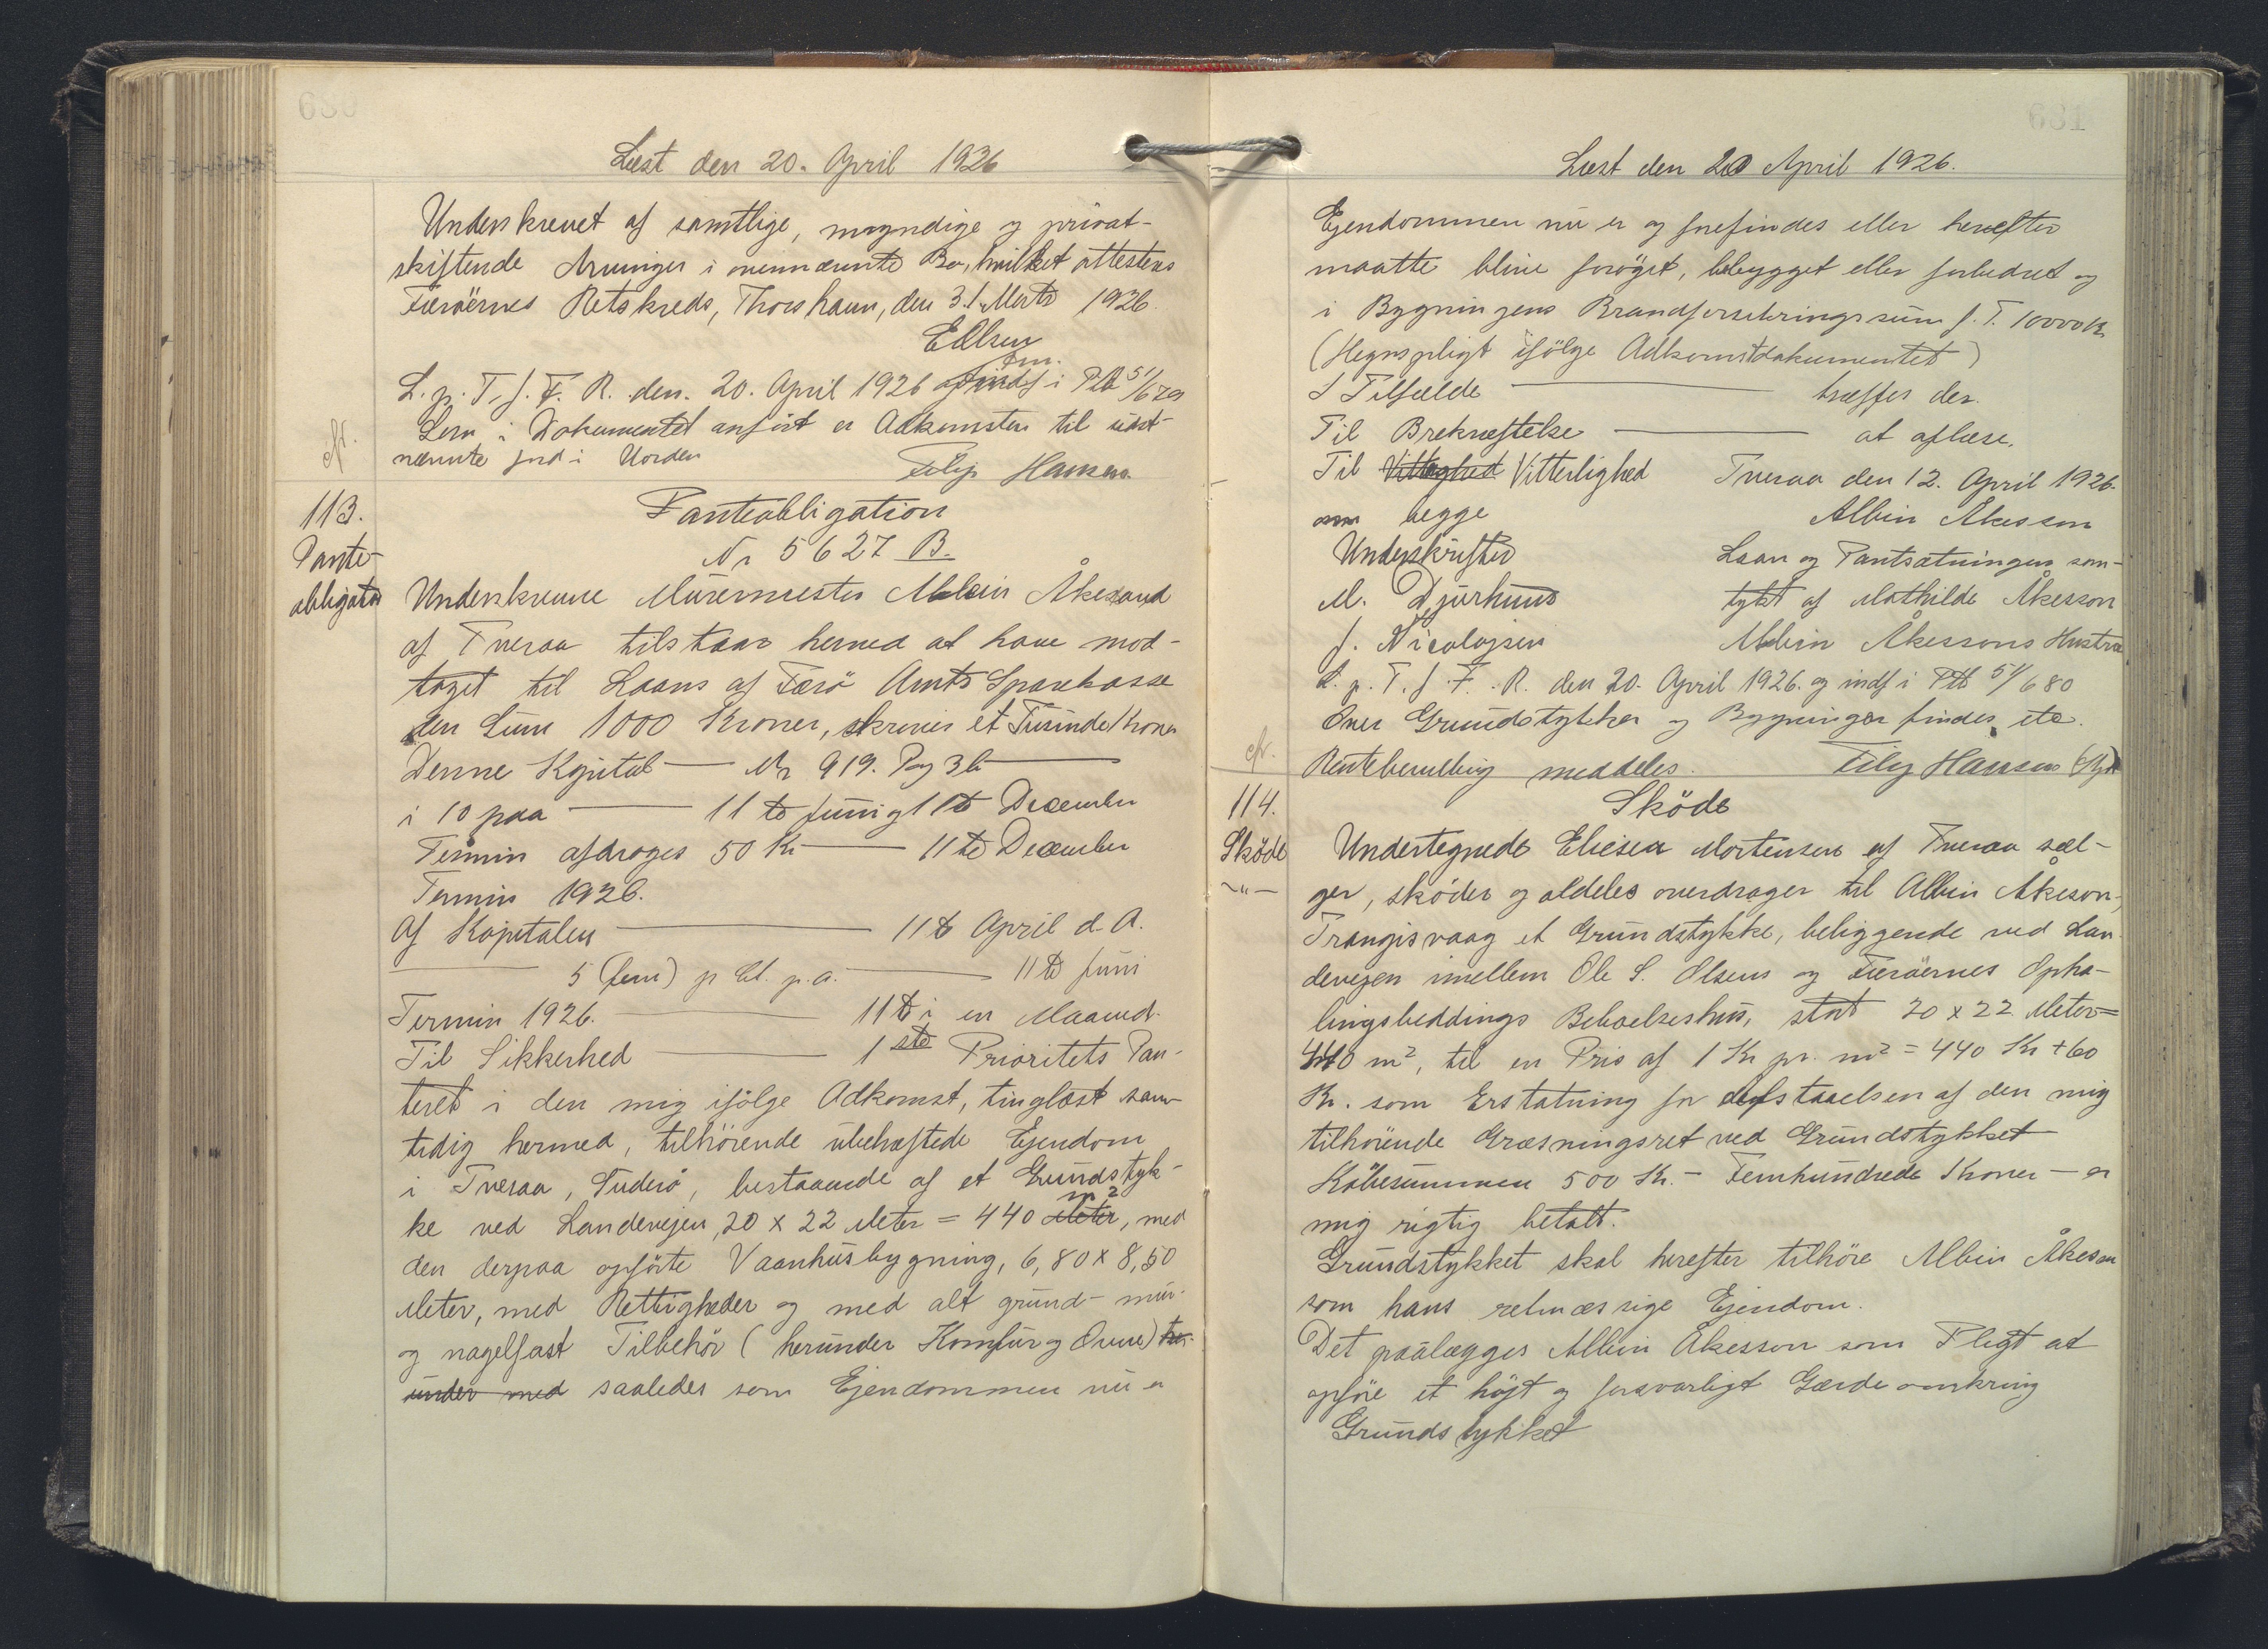 630
Læst den 20. April 1926
Underskrevet af samtlige, myndige og privat-
skiftende Arvinger i ovennævnte Bo, hvilket attesteres
Færöernes Retskreds, Thorshavn, den 31. Marts 1926.
Ellsen
fm.
L. p. T. f. F. R. den. 20. April 1926 og indf i Ptb 51/629
Som i Dokumentet anfört er Adkomsten til udst-
nævnte Jord i Orden
Filip Hansen.
cfr.
113.
Pante-
obligation
Panteobligation
Nr 5627 B.
Underskrevne Murermester Albin Åkesson
af Tveraa tilstaar herved at have mod-
taget til Laans af Færö Amts Sparekasse
den Sum 1000 Kroner, skriver et Tusinde Kroner
Denne Kapital — Nr 919. Pag 36 —
i 10 paa — 11te Juni og 11te December
Termin afdrages 50 Kr — 11te December
Termin 1926.
Af Kapitalen — 11te April d. A.
— 5 (fem) p Ct. p. a. — 11te Juni
Termin 1926. — 11te i en Maaned.
Til Sikkerhed — 1ste Prioritets Pan-
teret i den mig ifölge Adkomst, tinglæst sam-
tidig hermed, tilhörende ubehæftede Ejendom
i Tveraa, Suderö, bestaaende af et Grundstyk-
ke ved Landevejen, 20 x 22 Meter = 440 Meter m², med
den derpaa opförte Vaanhusbygning, 6,80 x 8,50
Meter, med Rettigheder og med alt grund- mur-
og nagelfast Tilbehör (herunder Komfur og Ovne) her-
under med saaledes som Ejendommen nu er
631
Læst den 20 April 1926.
Ejendommen nu er og forefindes eller herefter
maatte blive foröget, bebygget eller forbedret og
i Bygningens Brandforsikringssum f. T. 10000 Kr
(Hegnspligt ifölge Adkomstdokumentet)
I Tilfælde — træffes der.
Til Brekræftelse — at aflæse.
Til Vitterlighed Vitterlighed Tveraa den 12. April 1926.
om begge Albin Åkesson
Underskrifter Laan og Pantsætningen sam-
M. Djurhuus tykt af Mathilde Åkesson
J. Nicolajsen Albin Åkessons Hustru
L. p. T. f. F. R. den 20. April 1926. og indf i Ptb 51/680
Over Grundstykker og Bygninger findes etc.
Rentebevilling meddeles. Filip Hansen (Sign)
cfr.
114.
Sköde
-"-
Sköde
Undertegnede Eliesea Mortensen af Tveraa sæl-
ger, sköder og aldeles overdrager til Albin Åkeson,
Trangisvaag et Grundstykke, beliggende ved Lan-
devejen imellem Ole S. Olsens og Færöernes Opha-
lingsbeddings Beboelseshus, stort 20 x 22 Meter =
440 m², til en Pris af 1 Kr pr. m² = 440 Kr + 60
Kr. som Erstatning for afstaaelsen af den mig
tilhörende Græsningsret ved Grundstykket
Köbesummen 500 Kr. - Femhundrede Kroner — er
mig rigtig betalt.
Grundstykket skal herefter tilhöre Albin Åkeson
som hans retmæssige Ejendom.
Det paalægges Albin Åkesson som Pligt at
opföre et höjt og forsvarligt Gærde omkring
Grundstykket